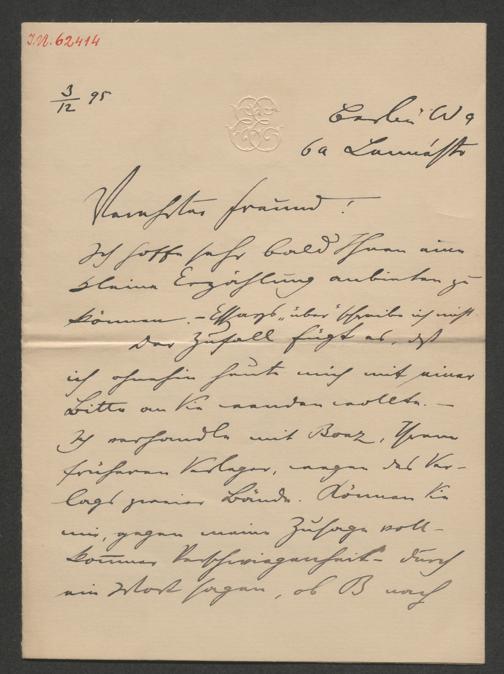 I.N. 62414
3/12 95
Berlin W 9
6a Lennéstr
Verehrter Freund!
Ich hoffe sehr bald Ihnen eine
kleine Erzählung anbieten zu
können. – Essays „über“ schreibe ich nicht.
Der Zufall fügt es, daß
ich ohnehin heute mich mit einer
Bitte an Sie wenden wollte. –
Ich verhandle mit Bonz, Ihrem
früheren Verleger, wegen des Ver-
lags zweier Bände. Können Sie
mir, gegen meine Zusage voll-
kommener Verschwiegenheit – durch
ein Wort sagen, ob B nach